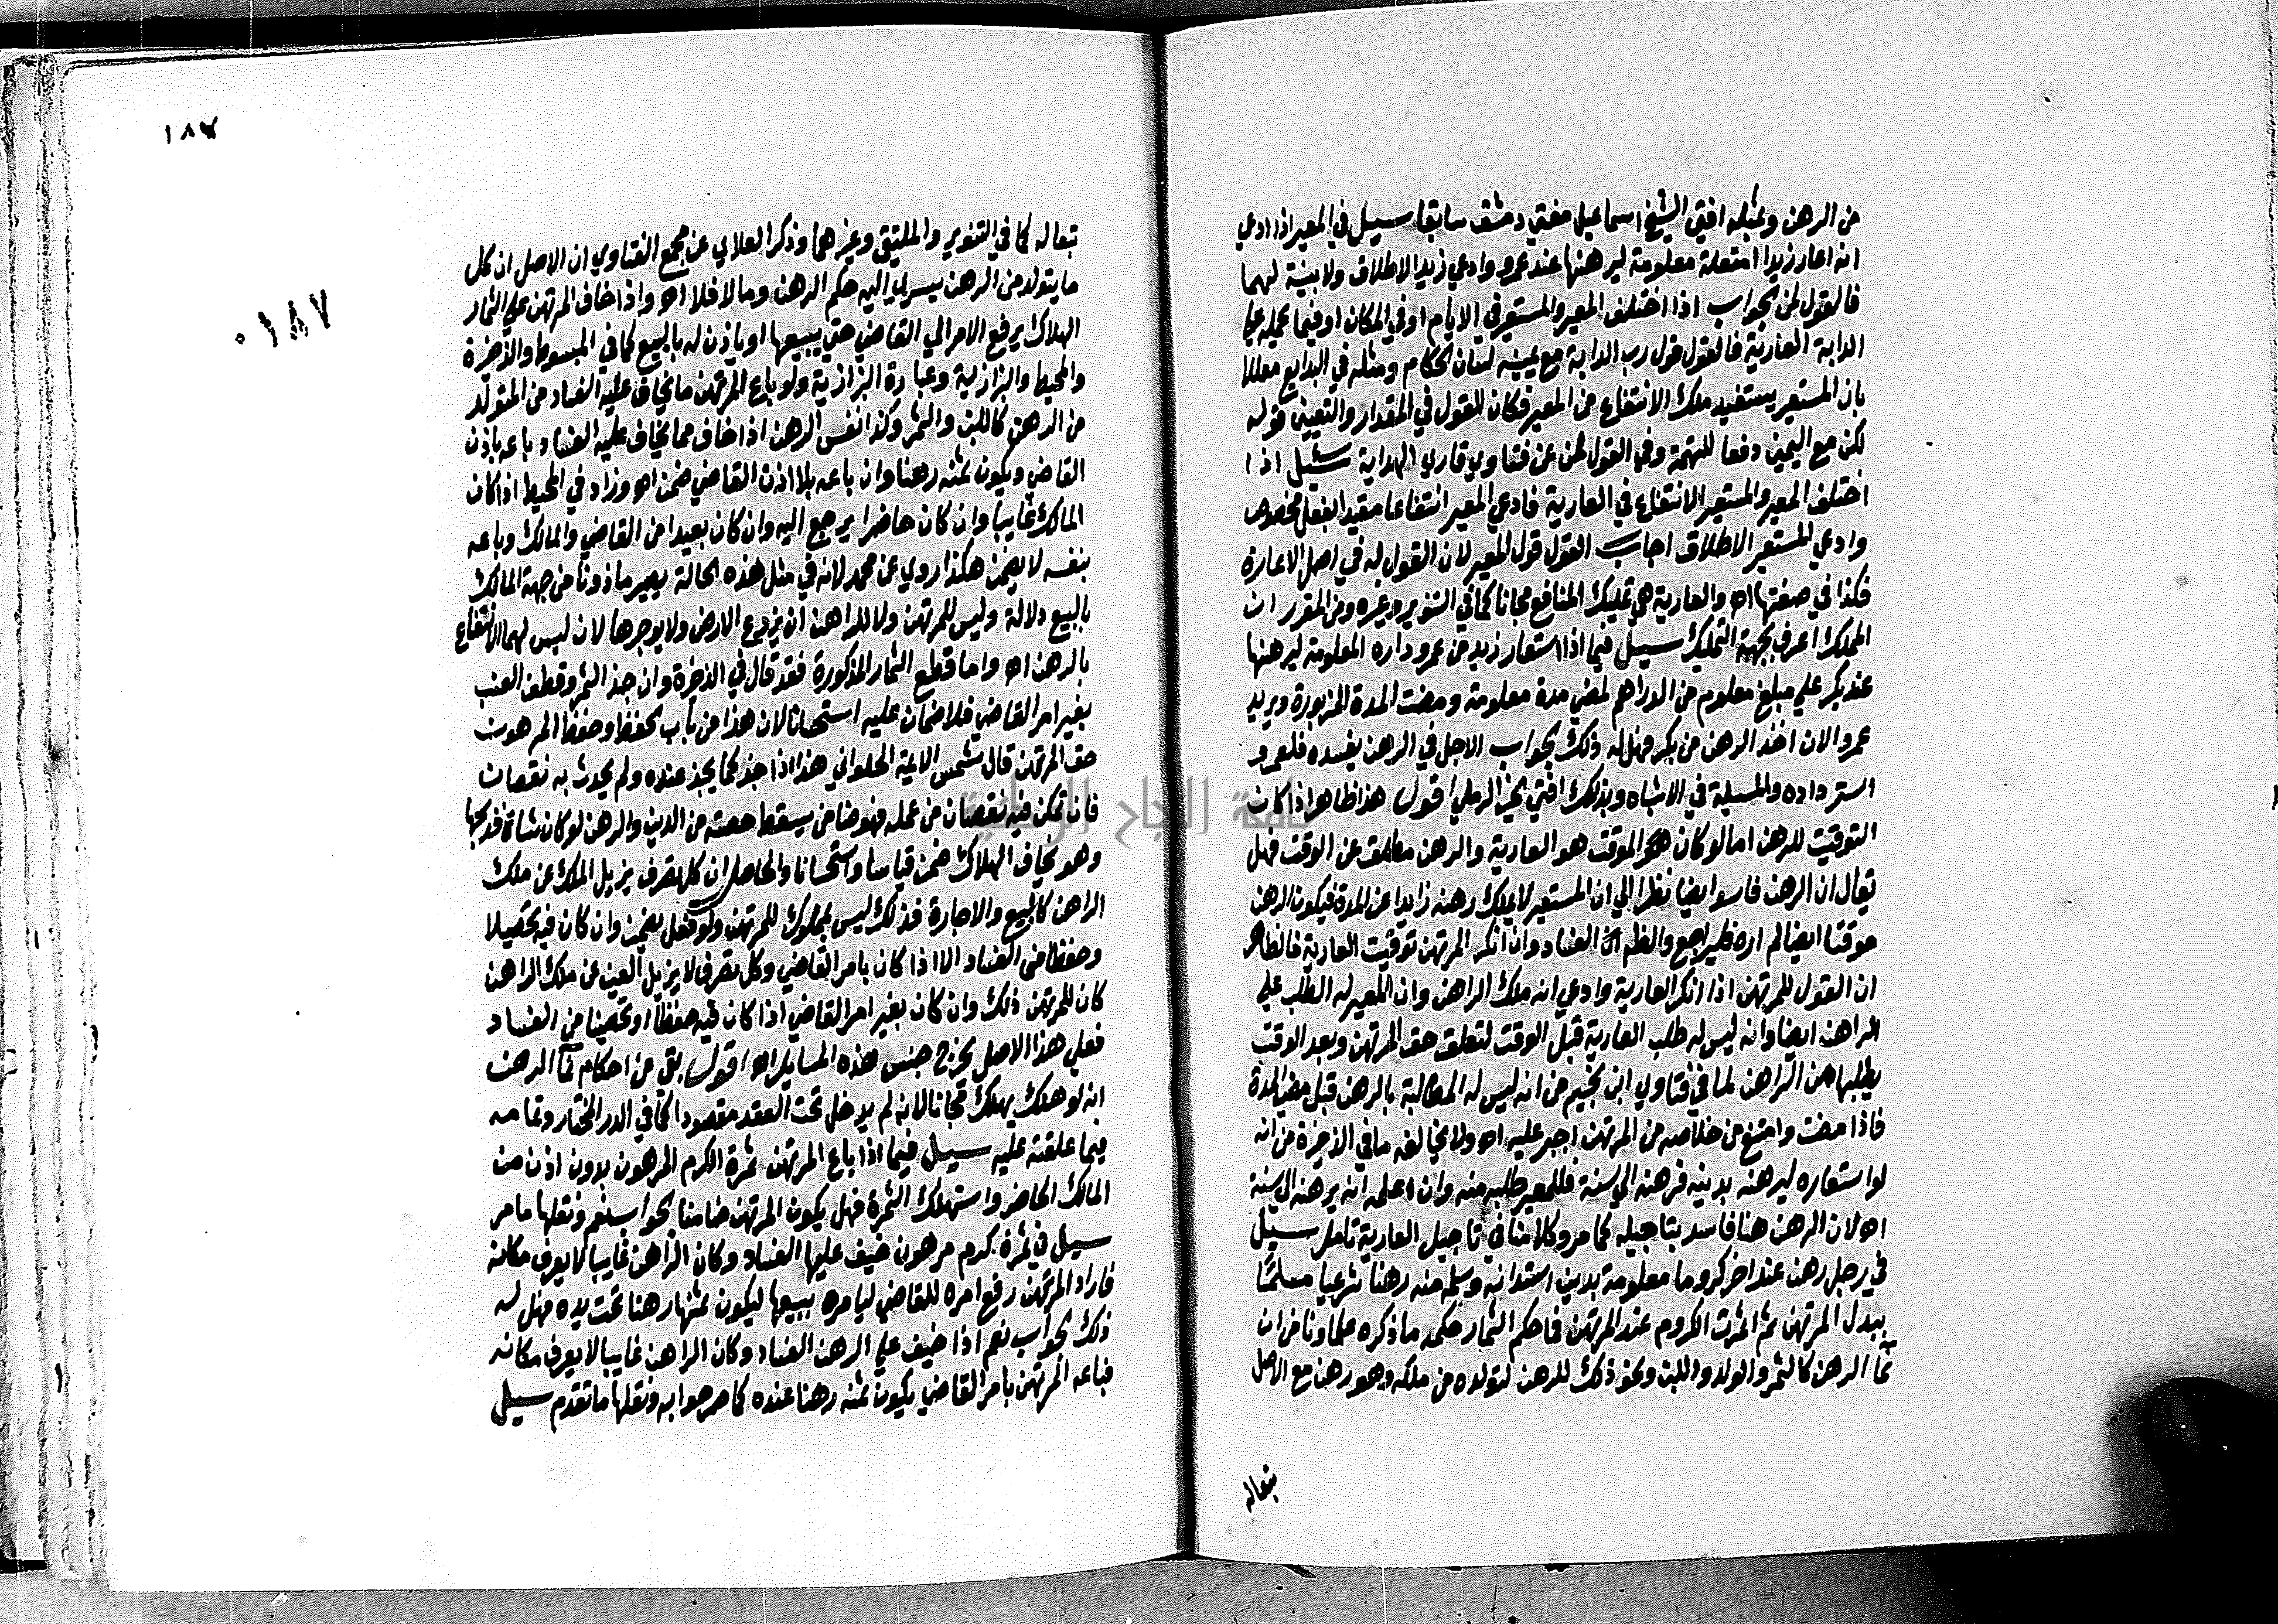 من الرهن وبمثله افتى الشيخ اسماعيل مفتي دمشق سابقا سيل في المعير اذا ادعي
انه اعار زيدا امتعة معلومة ليرهنها عند عمرو وادعي زيد الاطلاق ولا بينة لهما
فالقول لمن الجواب اذا اختلف المعير والمستعير في الايام او في المكان او فيما يحمله علي
الدابة العارية فالقول قول رب الدابة مع يمينه لسان الحكام ومثله في البدايع معللا
بان المستعير يستفيد ملك الانتفاع من المعير فكان القول في المقدار والتعيين قوله
لكن مع اليمين دفعا للتهمة وفي القول لمن عن فتاوي قاري الهداية سئل اذا
اختلف المعير والمستعير الانتفاع في العارية فادعي المعير انتفاعا مقيدا بفعل مخصوص
وادعي المستعير الاطلاق اجاب القول قول المعير لان القول له في اصل الاعارة
فكذا في صفتها اه والعارية هي تمليك المنافع مجانا كما في التنوير وغيره ومن المقرر ان
المملك اعرف بجهة التمليك سيل فيما اذا استعار زيد من عمرو داره المعلومة ليرهنها
عند بكر علي مبلغ معلوم من الدراهم لمضي مدة معلومة ومضت المدة المزبورة ويريد
عمرو الان اخذ الرهن من بكر فهل له ذلك الجواب الاجل في الرهن يفسده فلعمرو
استرداده والمسيلة في الاشباه وبذلك افتي الخير الرملي اقول هذا ظاهر اذا كان
التوقيت للرهن اما لو كان الموقت هو العارية والرهن مطلق عن الوقت فهل
يقال ان الرهن فاسد ايضا نظرا الي ان المستعير لا يملك رهنه زايدا عن المدة فيكون الرهن
موقتا ايضا لم اره فليراجع والظاهر الفساد وان انكر المرتهن توقيت العارية فالظاهر
ان القول للمرتهن اذا انكر العارية وادعي انه ملك الراهن وان المعير له الطلب علي
الراهن ايضا وانه ليس له طلب العارية قبل الوقت لتعلق حق المرتهن وبعد الوقت
يطلبها من الراهن لما في فتاوي ابن نجيم من انه ليس له المطالبة بالرهن قبل مضي المدة
فاذا مضت وامتنع من خلاصه من المرتهن اجبر عليه اه ولا يخالفه ما في الذخيرة من انه
لو استعاره ليرهنه بدينه فرهنه الي سنة فللمعير طلبه منه وان اعلمه انه يرهنه الي سنة
اه لان الرهن هنا فاسد بتاجيله كما مر وكلامنا في تاجيل العارية تامل سيل
في رجل رهن عند اخر كروما معلومة بدين استدانه وسلمه منه رهنا شرعيا مسلما
بيد المرتهن ثم اثمرت الكروم عند المرتهن فما حكم الثمار حكمه ما ذكره علماونا من ان
نما الرهن كالثمر والولد واللبن ونحو ذلك للرهن لتولده من ملكه وهو رهن مع الاصل
تبعا له
١٨٧
٠١٨٧
تبعا له كما في التنوير والملتقى وغيرهما وذكر العلائي عن مجمع الفتاوي ان الاصل ان كل
ما يتولد من الرهن يسري اليه حكم الرهن وما لا فلا اه واذا خاف المرتهن علي الثمار
الهلاك يرفع الامر الي القاضي حتى يبيعها او ياذن له بالبيع كما في المبسوط والذخيرة
والمحيط والبزازية وعبارة البزازية ولو باع المرتهن ما يخاف عليه الفساد من المتولد
من الرهن كاللبن والثمر وكذا نفس الرهن اذا خاف مما يخاف عليه الفساد باعه باذن
القاضي ويكون ثمنه رهنا وان باعه بلا اذن القاضي ضمن اه وزاد في المحيط اذا كان
المالك غايبا وان كان حاضرا يرجع اليه وان كان بعيدا من القاضي والمالك وباعه
بنفسه لا يضمن هكذا روي عن محمد لانه في مثل هذه الحالة يصير ماذونا من جهة المالك
بالبيع دلالة وليس للمرتهن ولا للراهن ان يزرع الارض ولا يوجرها لان ليس لهما الانتفاع
بالرهن اه واما قطع الثمار المذكورة فقد قال في الذخيرة وان جذ الثمر وقطف العنب
بغير امر القاضي فلا ضمان عليه استحسانا لان هذا من باب الحفظ وحفظ المرهون
حق المرتهن قال شمس الايمة الحلواني هذا اذا جذ كما يجذ عنده ولم يحدث به نقصان
فان تمكن فيه نقصان من عمله فهو ضامن يسقط حصته من الدين والرهن لو كان شاة فذبحها
وهو يخاف الهلاك ضمن قياسا واستحسانا والحاصل ان كل تصرف يزيل الملك عن ملك
الراهن كالبيع والاجارة فذلك ليس بمملوك للمرتهن ولو فعل يضمن وان كان فيه تحصيلا
وحفظا من الفساد الا اذا كان بامر القاضي وكل تصرف لا يزيل العين عن ملك الراهن
كان للمرتهن ذلك وان كان بغير امر القاضي اذا كان فيه حفظا او تحصينا من الفساد
فعلي هذا الاصل يخرج جنس هذه المسايل اه اقول بقي من احكام نما الرهن
انه لو هلك يهلك مجانا لانه لم يدخل تحت العقد مقصودا كما في الدر المختار وتمامه
فيما علقته عليه سيل فيما اذا باع المرتهن ثمرة الكرم المرهون بدون اذن من
المالك الحاضر واستهلك الثمرة فهل يكون المرتهن ضامنا الجواب نعم ونقلها ما مر
سيل في ثمرة كرم مرهون خيف عليها الفساد وكان الراهن غايبا لا يعرف مكانه
فاراد المرتهن رفع امره للقاضي ليامره ببيعها ليكون ثمنها رهنا تحت يده فهل له
ذلك الجواب نعم اذا خيف علي الرهن الفساد وكان الراهن غايبا لا يعرف مكانه
فباعه المرتهن بامر القاضي يكون ثمنه رهنا عنده كما مر جوابه ونقلها ما تقدم سيل
جامعة النجاح الوطنية